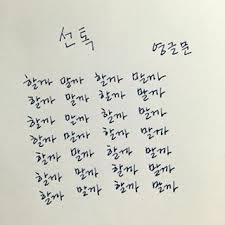 선톡
영글문
할까 말까 할까 말까
할까 말까 할까 말까
할까 말까 할까 말까
할까 말까 할까 말까
할까 말까 할까 말까
할까 말까 할까 말까
할까 말까 할까 말까